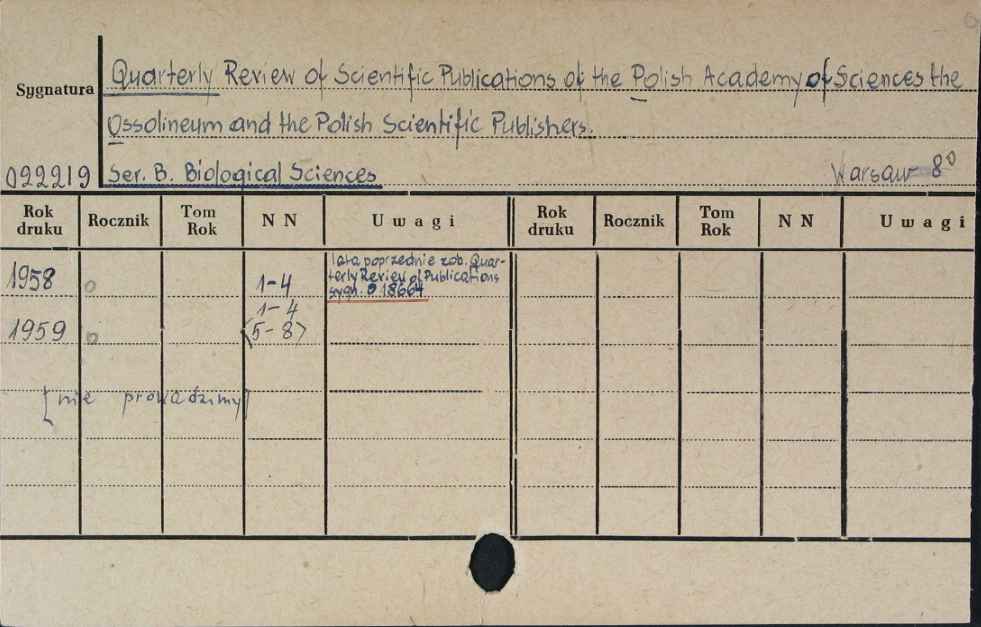 Sygnatura Quarterly Review of Scientific Publications of the Polish Academy of Sciences the
Ossolineum and the Polish Scientific Publishers.
022219 Ser. B. Biological Sciences Warsaw 8°
Rok druku Rocznik Tom Rok N N Uwagi Rok druku Rocznik Tom Rok N N Uwagi
lata poprzednie zob. Quar-
terly Review of Publications
1958 o 1-4 sygn. 0 18664
1-4
1959 o <5-8>
[nie prowadzimy]